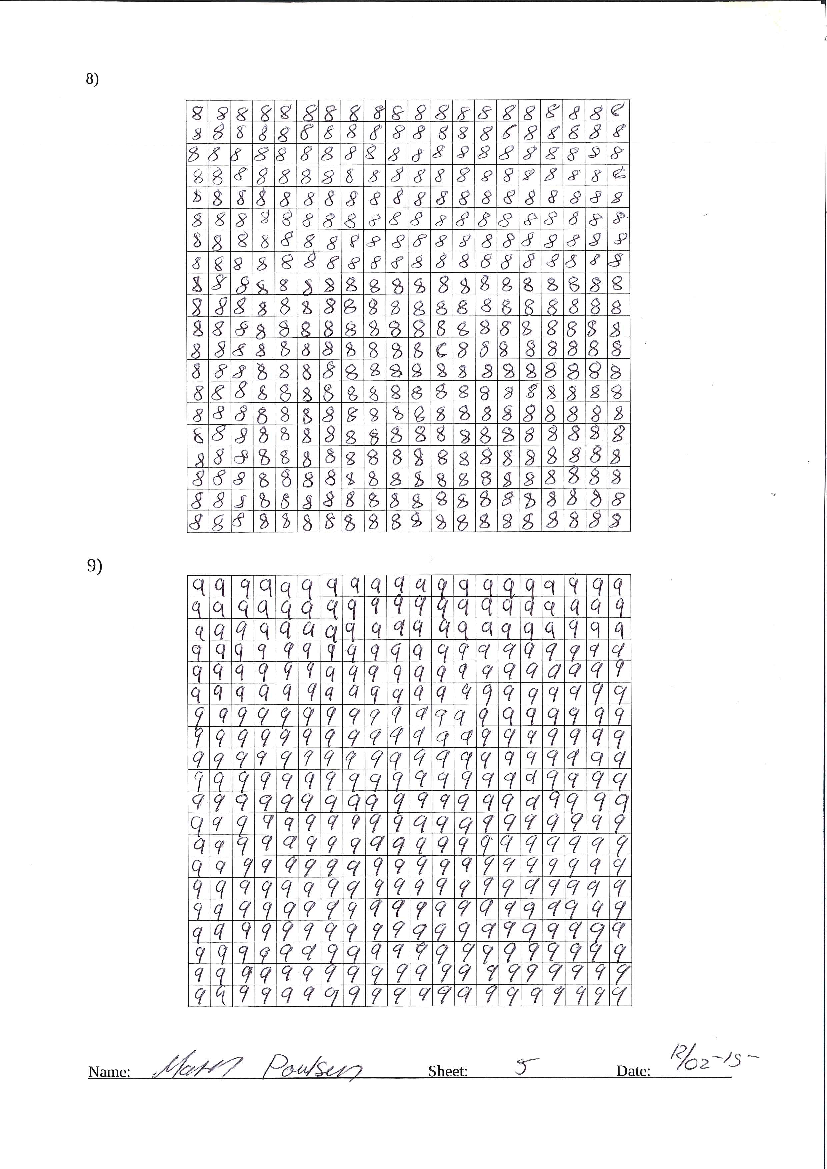 8)
8 8 8 8 8 8 8 8 8 8 8 8 8 8 8 8 8 8 8 8
8 8 8 8 8 8 8 8 8 8 8 8 8 8 8 8 8 8 8 8
8 8 8 8 8 8 8 8 8 8 8 8 8 8 8 8 8 8 8 8
8 8 8 8 8 8 8 8 8 8 8 8 8 8 8 8 8 8 8 8
8 8 8 8 8 8 8 8 8 8 8 8 8 8 8 8 8 8 8 8
8 8 8 8 8 8 8 8 8 8 8 8 8 8 8 8 8 8 8 8
8 8 8 8 8 8 8 8 8 8 8 8 8 8 8 8 8 8 8 8
8 8 8 8 8 8 8 8 8 8 8 8 8 8 8 8 8 8 8 8
8 8 8 8 8 8 8 8 8 8 8 8 8 8 8 8 8 8 8 8
8 8 8 8 8 8 8 8 8 8 8 8 8 8 8 8 8 8 8 8
8 8 8 8 8 8 8 8 8 8 8 8 8 8 8 8 8 8 8 8
8 8 8 8 8 8 8 8 8 8 8 8 8 8 8 8 8 8 8 8
8 8 8 8 8 8 8 8 8 8 8 8 8 8 8 8 8 8 8 8
8 8 8 8 8 8 8 8 8 8 8 8 8 8 8 8 8 8 8 8
8 8 8 8 8 8 8 8 8 8 8 8 8 8 8 8 8 8 8 8
8 8 8 8 8 8 8 8 8 8 8 8 8 8 8 8 8 8 8 8
8 8 8 8 8 8 8 8 8 8 8 8 8 8 8 8 8 8 8 8
8 8 8 8 8 8 8 8 8 8 8 8 8 8 8 8 8 8 8 8
8 8 8 8 8 8 8 8 8 8 8 8 8 8 8 8 8 8 8 8
8 8 8 8 8 8 8 8 8 8 8 8 8 8 8 8 8 8 8 8
9)
9 9 9 9 9 9 9 9 9 9 9 9 9 9 9 9 9 9 9 9
9 9 9 9 9 9 9 9 9 9 9 9 9 9 9 9 9 9 9 9
9 9 9 9 9 9 9 9 9 9 9 9 9 9 9 9 9 9 9 9
9 9 9 9 9 9 9 9 9 9 9 9 9 9 9 9 9 9 9 9
9 9 9 9 9 9 9 9 9 9 9 9 9 9 9 9 9 9 9 9
9 9 9 9 9 9 9 9 9 9 9 9 9 9 9 9 9 9 9 9
9 9 9 9 9 9 9 9 9 9 9 9 9 9 9 9 9 9 9 9
9 9 9 9 9 9 9 9 9 9 9 9 9 9 9 9 9 9 9 9
9 9 9 9 9 9 9 9 9 9 9 9 9 9 9 9 9 9 9 9
9 9 9 9 9 9 9 9 9 9 9 9 9 9 9 9 9 9 9 9
9 9 9 9 9 9 9 9 9 9 9 9 9 9 9 9 9 9 9 9
9 9 9 9 9 9 9 9 9 9 9 9 9 9 9 9 9 9 9 9
9 9 9 9 9 9 9 9 9 9 9 9 9 9 9 9 9 9 9 9
9 9 9 9 9 9 9 9 9 9 9 9 9 9 9 9 9 9 9 9
9 9 9 9 9 9 9 9 9 9 9 9 9 9 9 9 9 9 9 9
9 9 9 9 9 9 9 9 9 9 9 9 9 9 9 9 9 9 9 9
9 9 9 9 9 9 9 9 9 9 9 9 9 9 9 9 9 9 9 9
9 9 9 9 9 9 9 9 9 9 9 9 9 9 9 9 9 9 9 9
9 9 9 9 9 9 9 9 9 9 9 9 9 9 9 9 9 9 9 9
9 9 9 9 9 9 9 9 9 9 9 9 9 9 9 9 9 9 9 9
Name: Poulsen Sheet: 5 Date: 12/02-15-